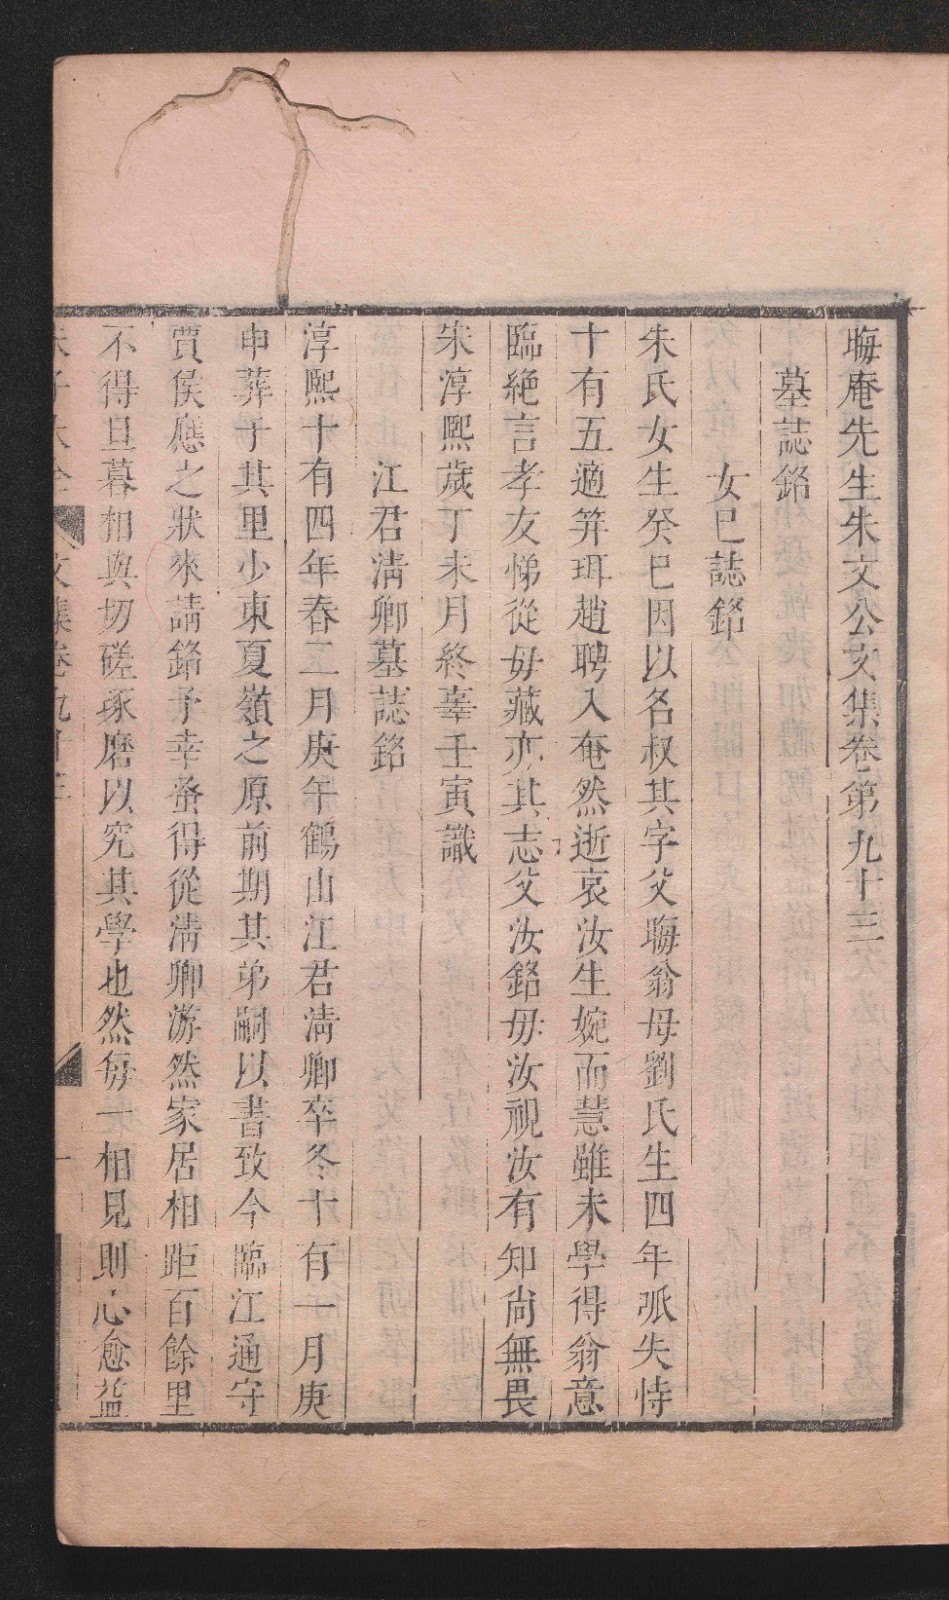 晦庵先生朱文公文集卷第九十三
墓誌銘
女巳誌銘
朱氏女生癸巳因以名叔其字父晦翁母劉氏生四年呱失恃
十有五適笄珥趙聘入奄然逝哀汝生婉而慧雖未學得翁意
臨絶言孝友悌從母藏亦其志父汝銘母汝視汝有知尚無畏
宋淳熈歲丁未月終辜壬寅識
江君清卿墓誌銘
淳熈十有四年春二月庚午鶴山江君清卿卒冬十有一月庚
申葬于其里少東夏嶺之原前期其弟嗣以書致今臨江通守
賈侯應之狀來請銘予幸蚤得從清卿游然家居相距百餘里
不得旦暮相與切磋琢磨以究其學也然每一相見則心愈益
朱子大全 文集卷九十三 一